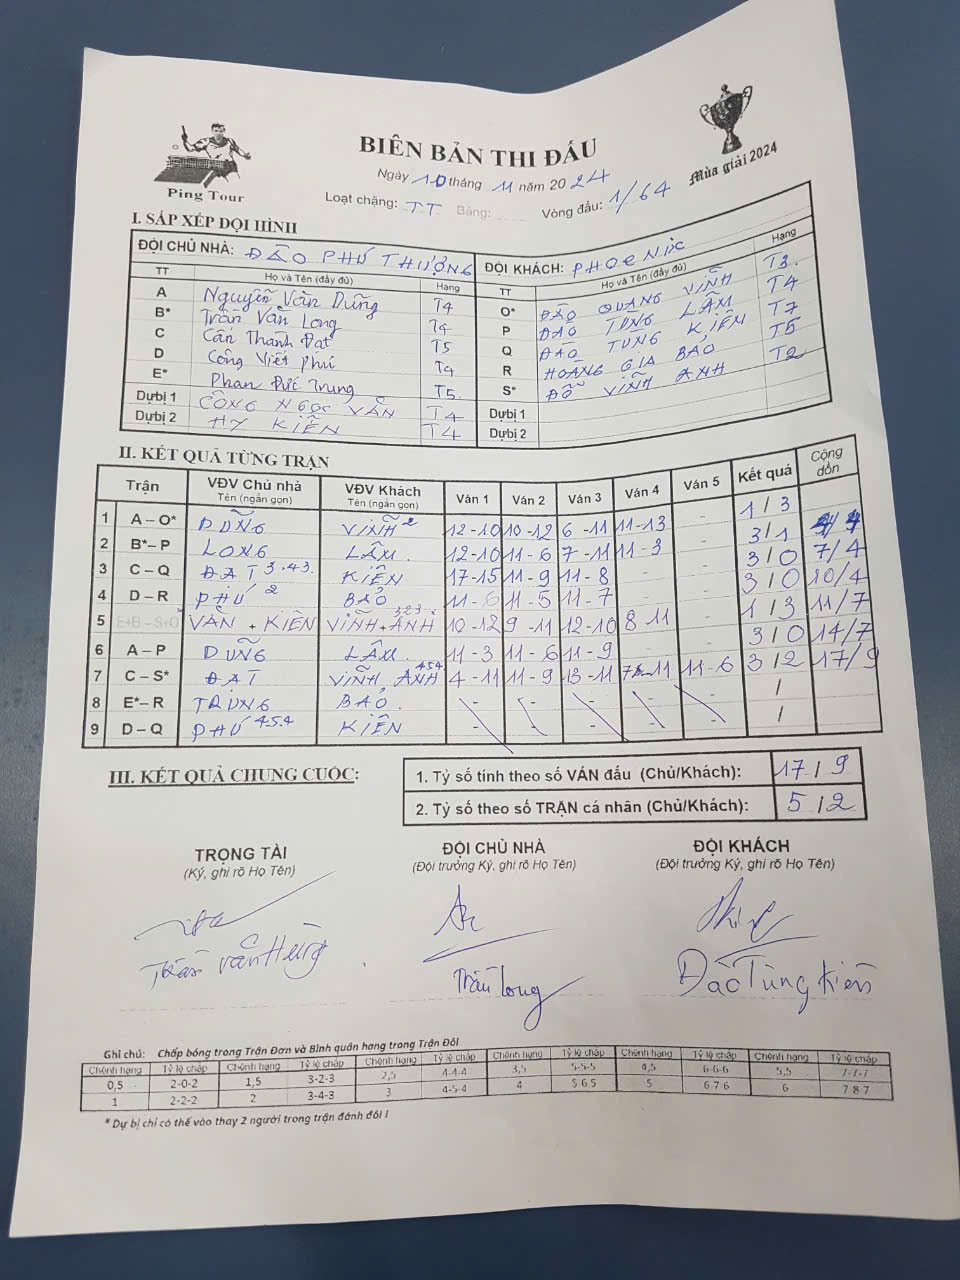 Ping Tour
BIÊN BẢN THI ĐẤU
Ngày 10 tháng 11 năm 2024
Mùa giải 2024
Loạt chặng: TT Bảng: Vòng đấu: 1/64
I. SẮP XẾP ĐỘI HÌNH
ĐỘI CHỦ NHÀ: ĐÀO PHÚ THƯỢNG ĐỘI KHÁCH: PHOENIC
TT Họ và Tên (đầy đủ) Hạng TT Họ và Tên (đầy đủ) Hạng
A Nguyễn Văn Dũng T4 O* ĐÀO QUANG VĨNH T3
B* Trần Văn Long T4 P ĐÀO TÙNG LÂM T4
C Cấn Thành Đạt T5 Q ĐÀO TÙNG KIÊN T7
D Công Viết Phú T4 R HOÀNG GIA BẢO T5
E* Phan Đức Trung T5 S* ĐỖ VĨNH ANH T2
Dự bị 1 CÔNG NGỌC VÂN T4 Dự bị 1
Dự bị 2 HY KIÊN T4 Dự bị 2
II. KẾT QUẢ TỪNG TRẬN
Trận VĐV Chủ nhà Tên (ngắn gọn) VĐV Khách Tên (ngắn gọn) Ván 1 Ván 2 Ván 3 Ván 4 Ván 5 Kết quả Cộng dồn
1 A – O* DŨNG VĨNH 2 12-10 10-12 6-11 11-13 - 1/3
2 B* – P LONG LÂM 12-10 11-6 7-11 11-3 - 3/1 4/4
3 C – Q ĐẠT 3.43. KIÊN 17-15 11-9 11-8 - - 3/0 7/4
4 D – R PHÚ 2 BẢO 11-6 11-5 11-7 - - 3/0 10/4
5 E+B – S+O VÂN + KIÊN VĨNH + ANH 323 10-12 9-11 12-10 8 11 - 1/3 11/7
6 A – P DŨNG LÂM 11-3 11-6 11-9 - - 3/0 14/7
7 C – S* ĐẠT VĨNH ANH 454 4-11 11-9 13-11 7-11 11-6 3/2 17/9
8 E* – R TRUNG BẢO - - - - - /
9 D – Q PHÚ 4.5.4 KIÊN - - - - - /
III. KẾT QUẢ CHUNG CUỘC:
1. Tỷ số tính theo số VÁN đấu (Chủ/Khách): 17/9
2. Tỷ số theo số TRẬN cá nhân (Chủ/Khách): 5/2
TRỌNG TÀI ĐỘI CHỦ NHÀ ĐỘI KHÁCH
(Ký, ghi rõ Họ Tên) (Đội trưởng Ký, ghi rõ Họ Tên) (Đội trưởng Ký, ghi rõ Họ Tên)
Trần Văn Hùng Trần Long Đào Tùng Kiên
Ghi chú: Chấp bóng trong Trận Đơn và Bình quân hạng trong Trận Đôi
Chênh hạng Tỷ lệ chấp Chênh hạng Tỷ lệ chấp Chênh hạng Tỷ lệ chấp Chênh hạng Tỷ lệ chấp Chênh hạng Tỷ lệ chấp Chênh hạng Tỷ lệ chấp
0,5 2-0-2 1,5 3-2-3 2,5 4-4-4 3,5 5-5-5 4,5 6-6-6 5,5 7-7-7
1 2-2-2 2 3-4-3 3 4-5-4 4 5 6 5 5 6-7 6 6 7 8 7
* Dự bị chỉ có thể vào thay 2 người trong trận đánh đôi !